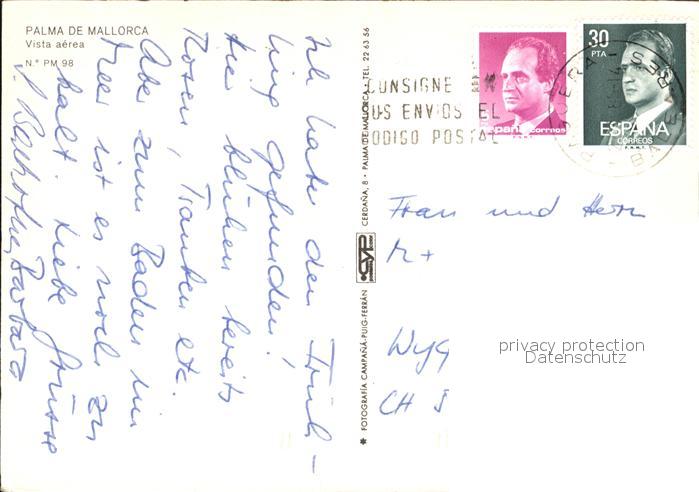 PALMA DE MALLORCA
Vista aérea
N.º PM 98
Ich habe den Früh-
ling gefunden!
Hier blühen bereits
Rosen, Trauben etc.
Aber zum Baden im
Meer ist es noch zu
kalt. Liebe Grüsse
Barbara
✱ FOTOGRAFÍA CAMPAÑÁ-PUIG-FERRÁN
CERDAÑA, 8 • PALMA DE MALLORCA • TEL. 22 63 56
CONSIGNE
SUS ENVIOS EL
CODIGO POSTAL
españa correos
30
PTA
ESPAÑA
CORREOS
F.N.M.T.
Frau und Herrn
M+
Wyg
CH
privacy protection
Datenschutz